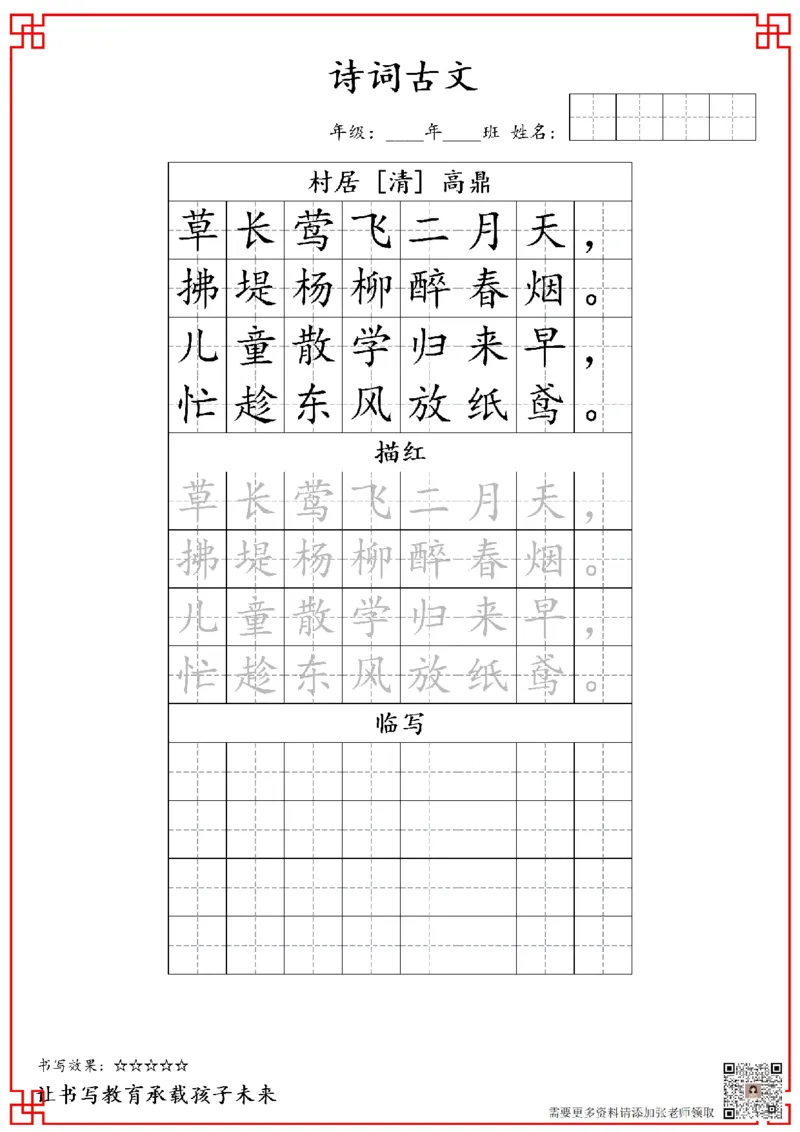 诗词古文
年级：____年____班 姓名：
村居［清］高鼎
草长莺飞二月天，
拂堤杨柳醉春烟。
儿童散学归来早，
忙趁东风放纸鸢。
描红
草长莺飞二月天，
拂堤杨柳醉春烟。
儿童散学归来早，
忙趁东风放纸鸢。
临写
书写效果：☆☆☆☆☆
让书写教育承载孩子未来
需要更多资料请添加张老师领取